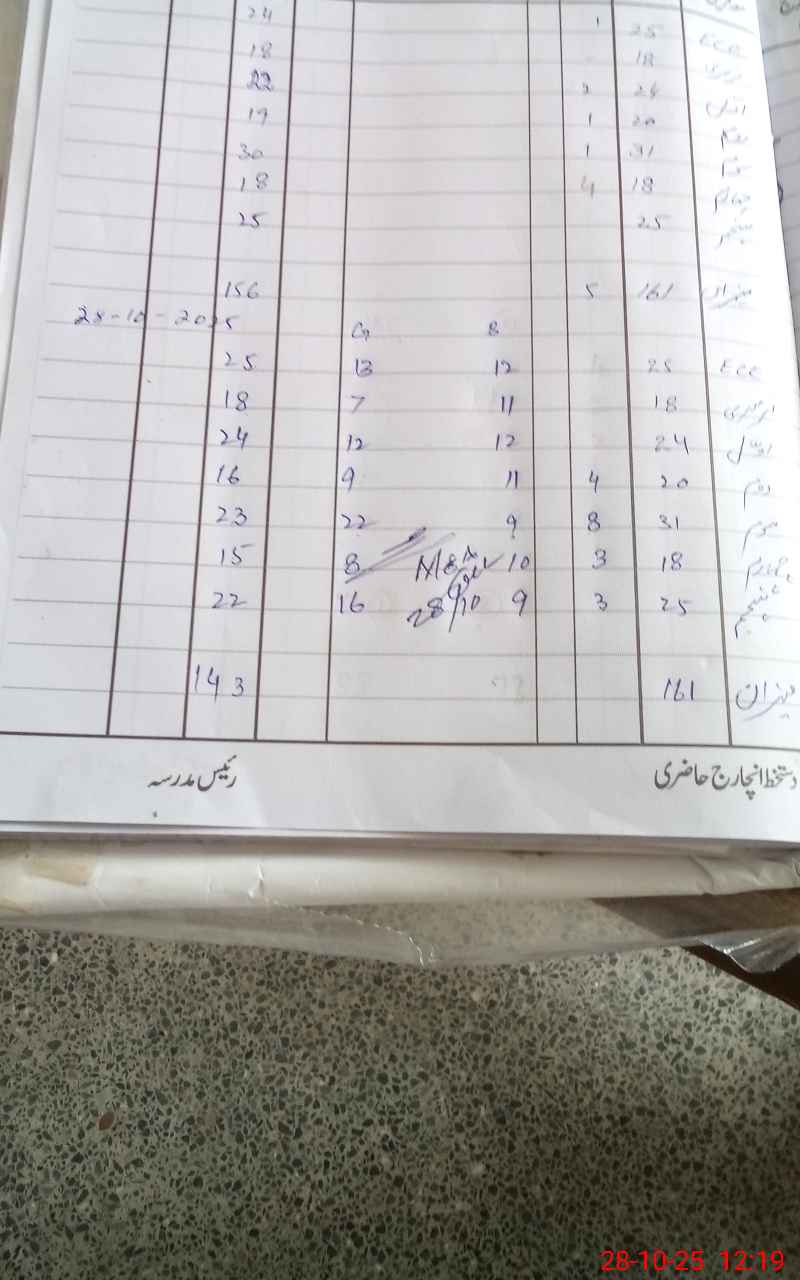 ECE 25 1 24
نرسری 18 18
اول 24 2 22
دوم 20 1 19
سوم 31 1 30
چہارم 18 4 18
پنجم 25 25
میزان 161 5 156
B G 28-10-2025
ECE 25 12 13 25
نرسری 18 11 7 18
اول 24 12 12 24
دوم 20 4 11 9 16
سوم 31 8 9 22 23
چہارم 18 3 10 8 15
پنجم 25 3 9 28/10 16 22
میزان 161 143
دستخط انچارج حاضری رئیس مدرسہ
28-10-25 12:19